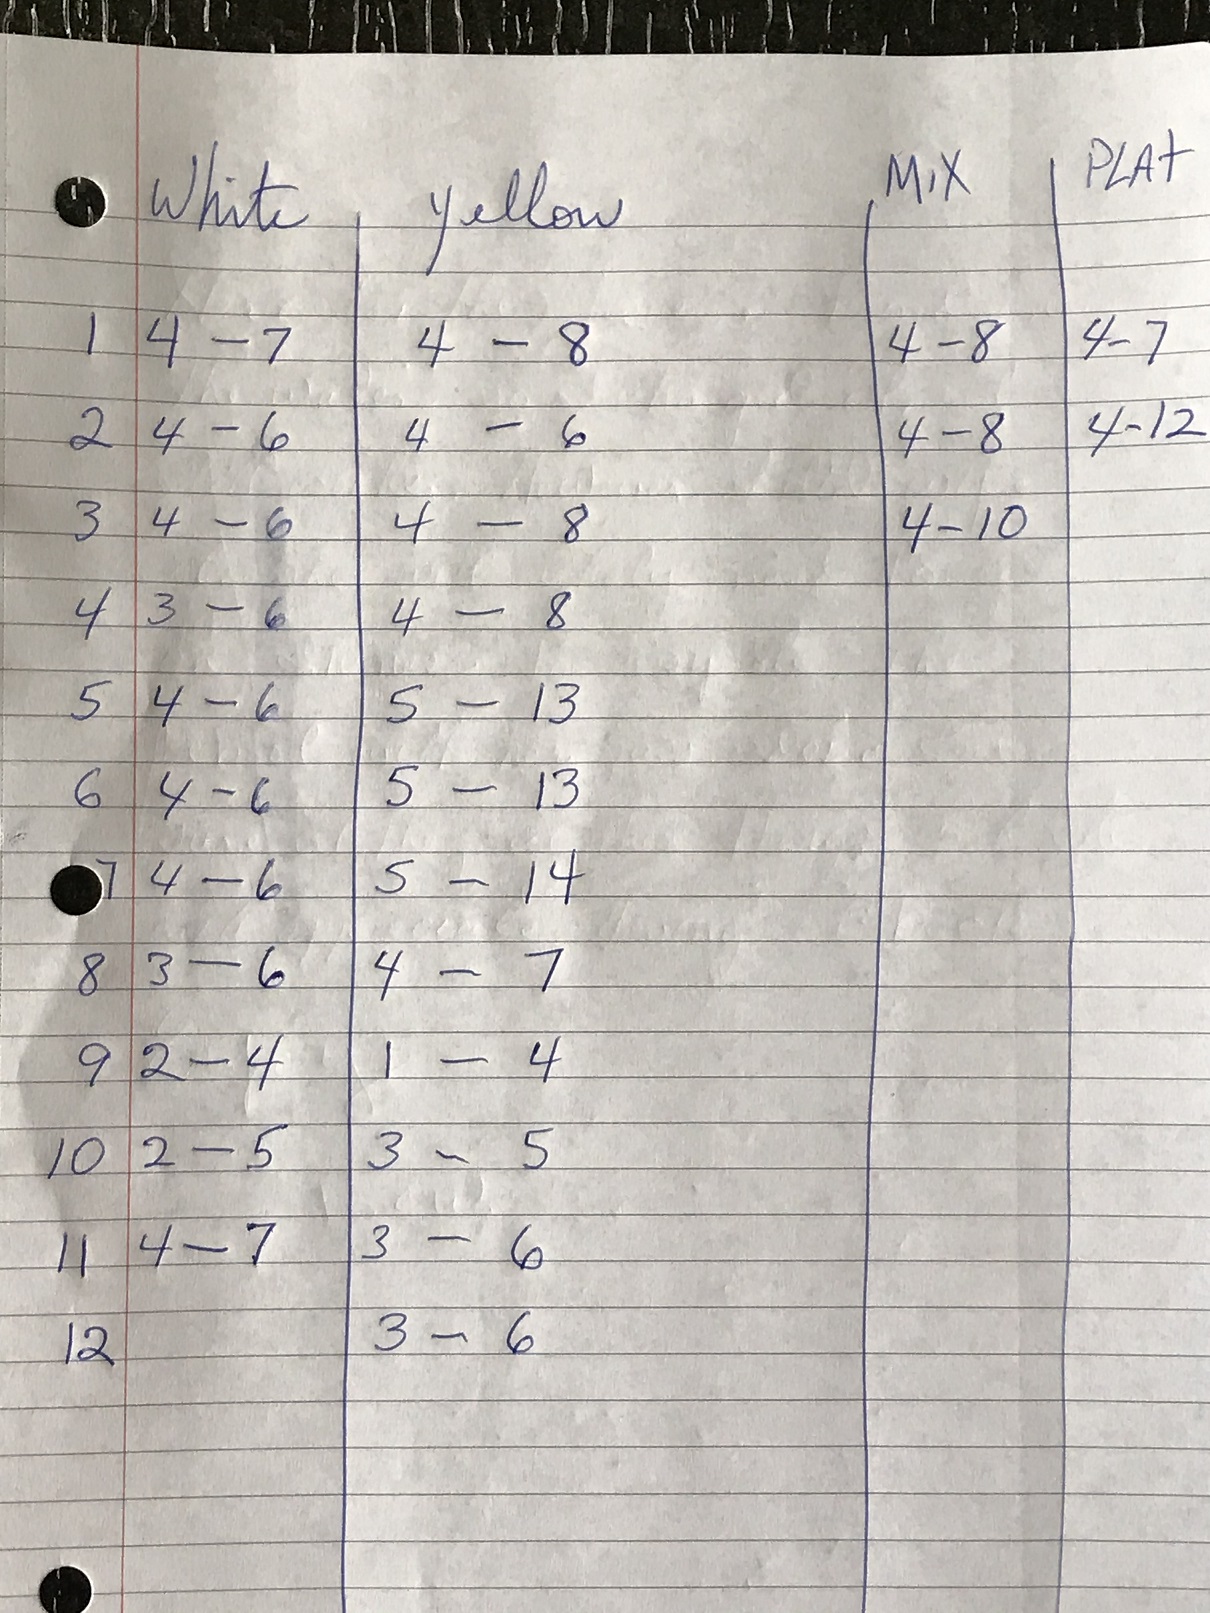 White yellow MIX PLAt
1 4 - 7 4 - 8 4-8 4-7
2 4 - 6 4 - 6 4-8 4-12
3 4 - 6 4 - 8 4-10
4 3 - 6 4 - 8
5 4 - 6 5 - 13
6 4 - 6 5 - 13
7 4 - 6 5 - 14
8 3 - 6 4 - 7
9 2 - 4 1 - 4
10 2 - 5 3 - 5
11 4 - 7 3 - 6
12 3 - 6